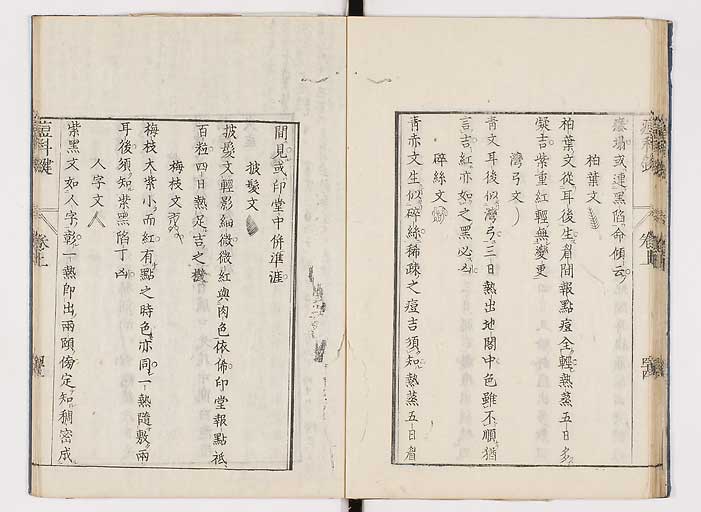 發塌或連黑陷命傾云
柏葉文
柏葉文從耳後生眉間報點痘全輕熱蒸五日多
凝吉紫重紅輕無變更
灣弓文
青文耳後似灣弓三日熱出地閣中色雖不順猶
言吉紅亦如之黑必凶
碎絲文
青赤文生似碎絲稀疎之痘吉須知熱蒸五日眉
間見或印堂中併準涯
披髮文
披髮文輕影細微微紅與肉色依俙印堂報點袛
百粒四日熱足吉之
梅枝文
梅枝大紫小而紅有點之時色亦同一熱隨敷兩
耳後須知紫黑陷丁凶
人字文
紫黑文如人字彰一熱即出兩頤傍定知稠密成
痘科鍵
卷上